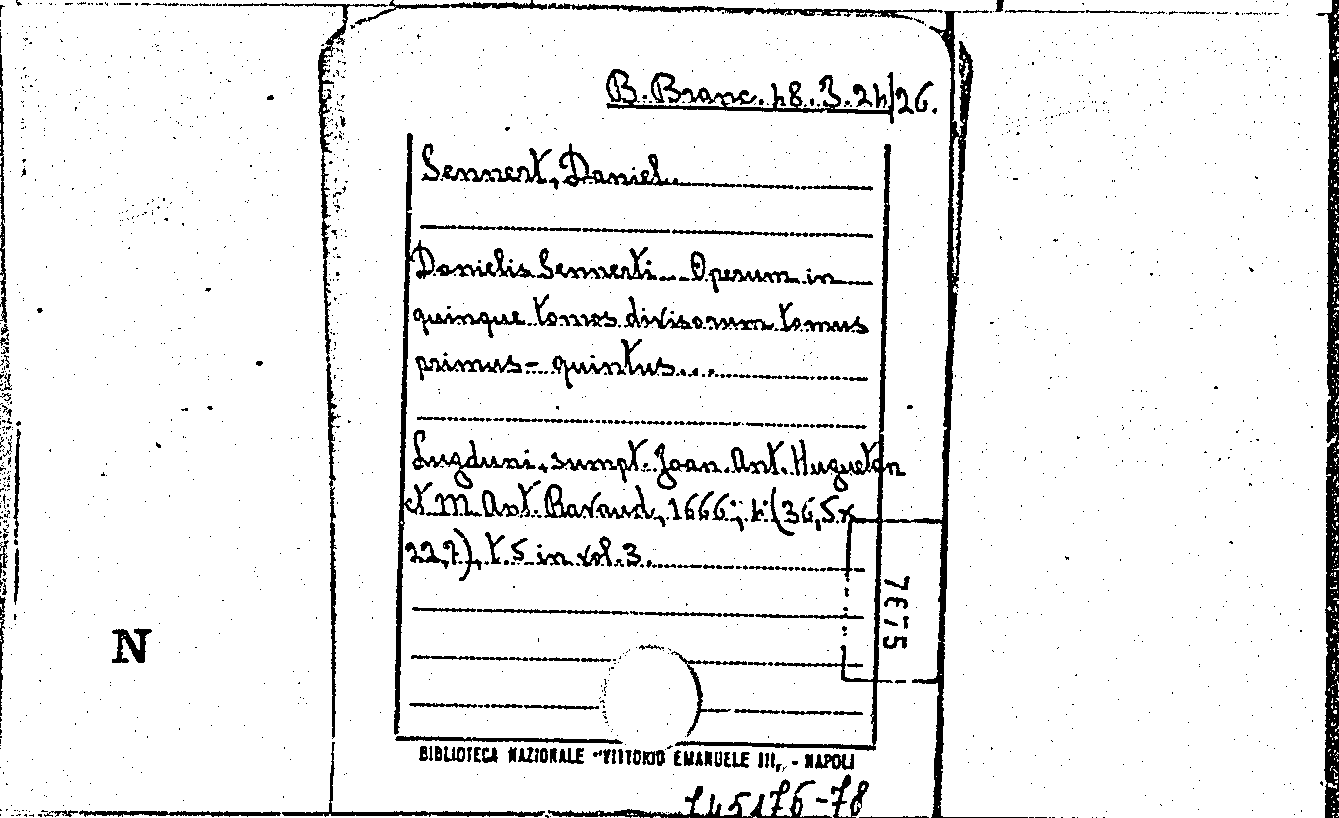 B. Branc. 48. 3. 24/26.
Sennert, Daniel.
Danielis Sennerti... Operum in
quinque tomos divisorum tomus
primus - quintus...
Lugduni, sumpt. Joan. Ant. Huguetan
et M. Ant. Ravaud, 1666; 4° (36,5x
22,7), t. 5 in vol. 3.
7675
N
BIBLIOTECA NAZIONALE "VITTORIO EMANUELE III„ - NAPOLI
745176-78